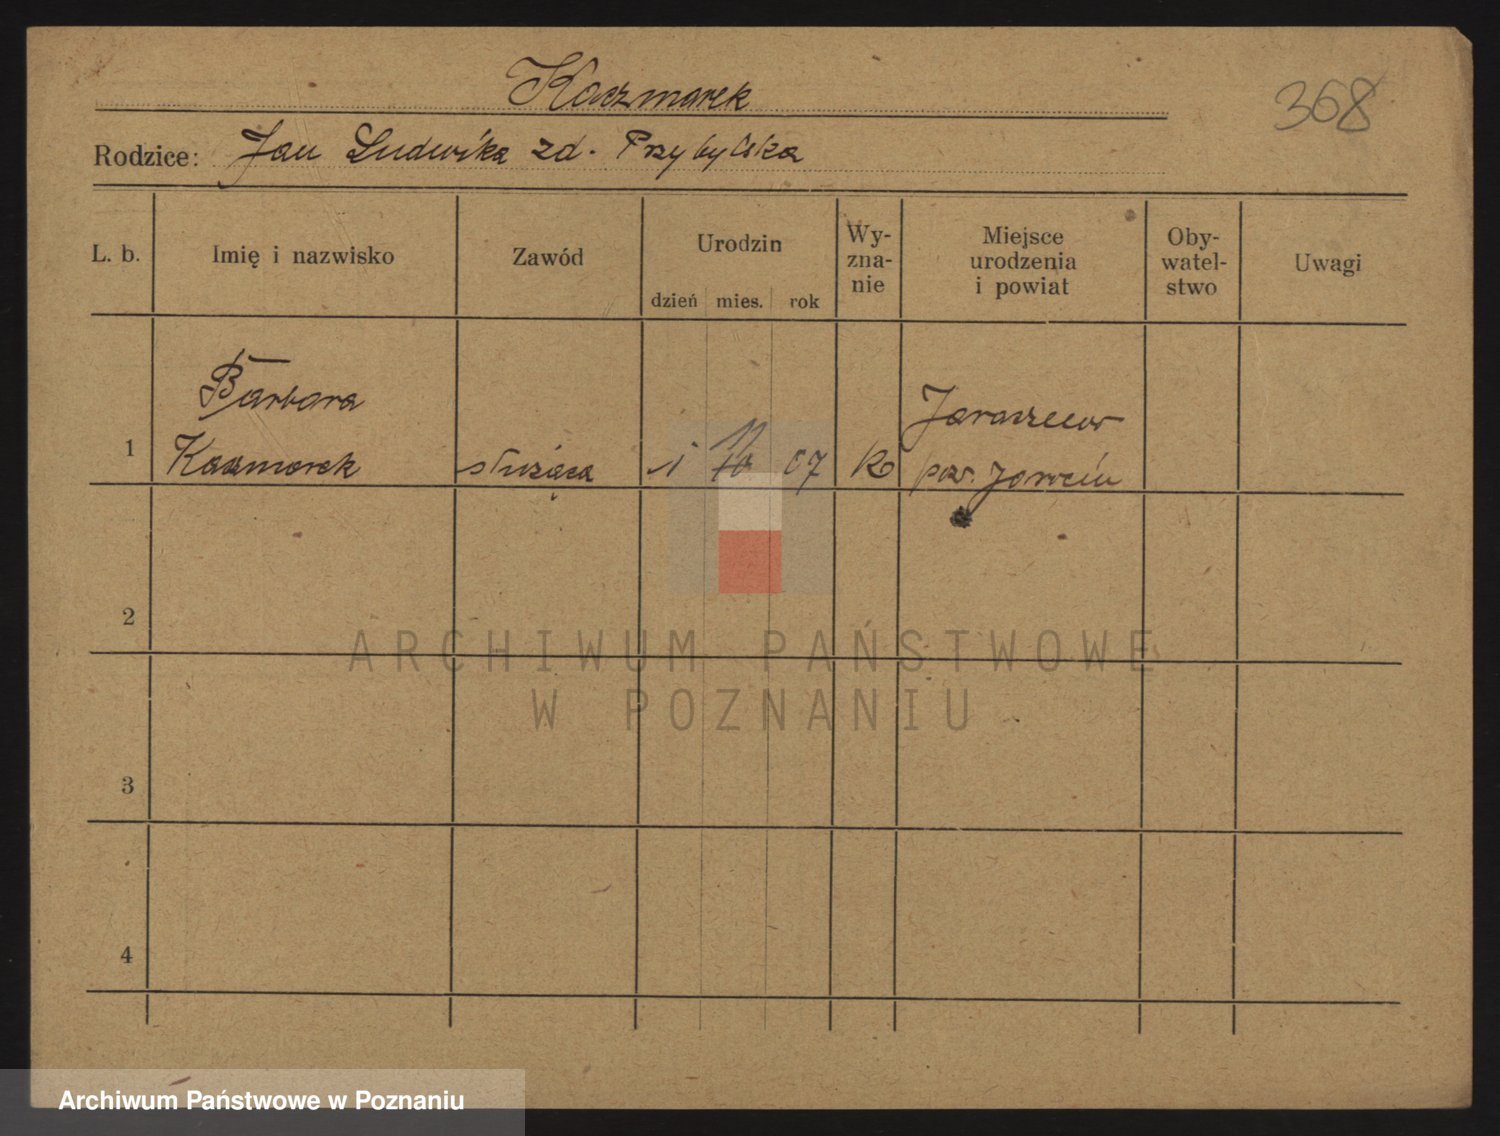 Kaczmarek
368
Rodzice: Jan Ludwika zd. Przybylska
L. b.
Imię i nazwisko
Zawód
Urodzin
dzień mies. rok
Wy-
zna-
nie
Miejsce
urodzenia
i powiat
Oby-
watel-
stwo
Uwagi
1
Barbara
Kaczmarek
służąca
1 10 11 07
K
Jaraczewo
pow. Jarocin
2
3
4
ARCHIWUM PAŃSTWOWE
W POZNANIU
Archiwum Państwowe w Poznaniu